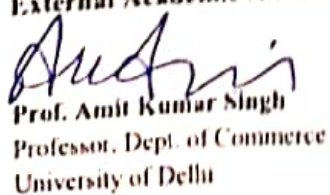 External Academic
Prof. Amit Kumar Singh
Professor, Dept. of Commerce
University of Delhi